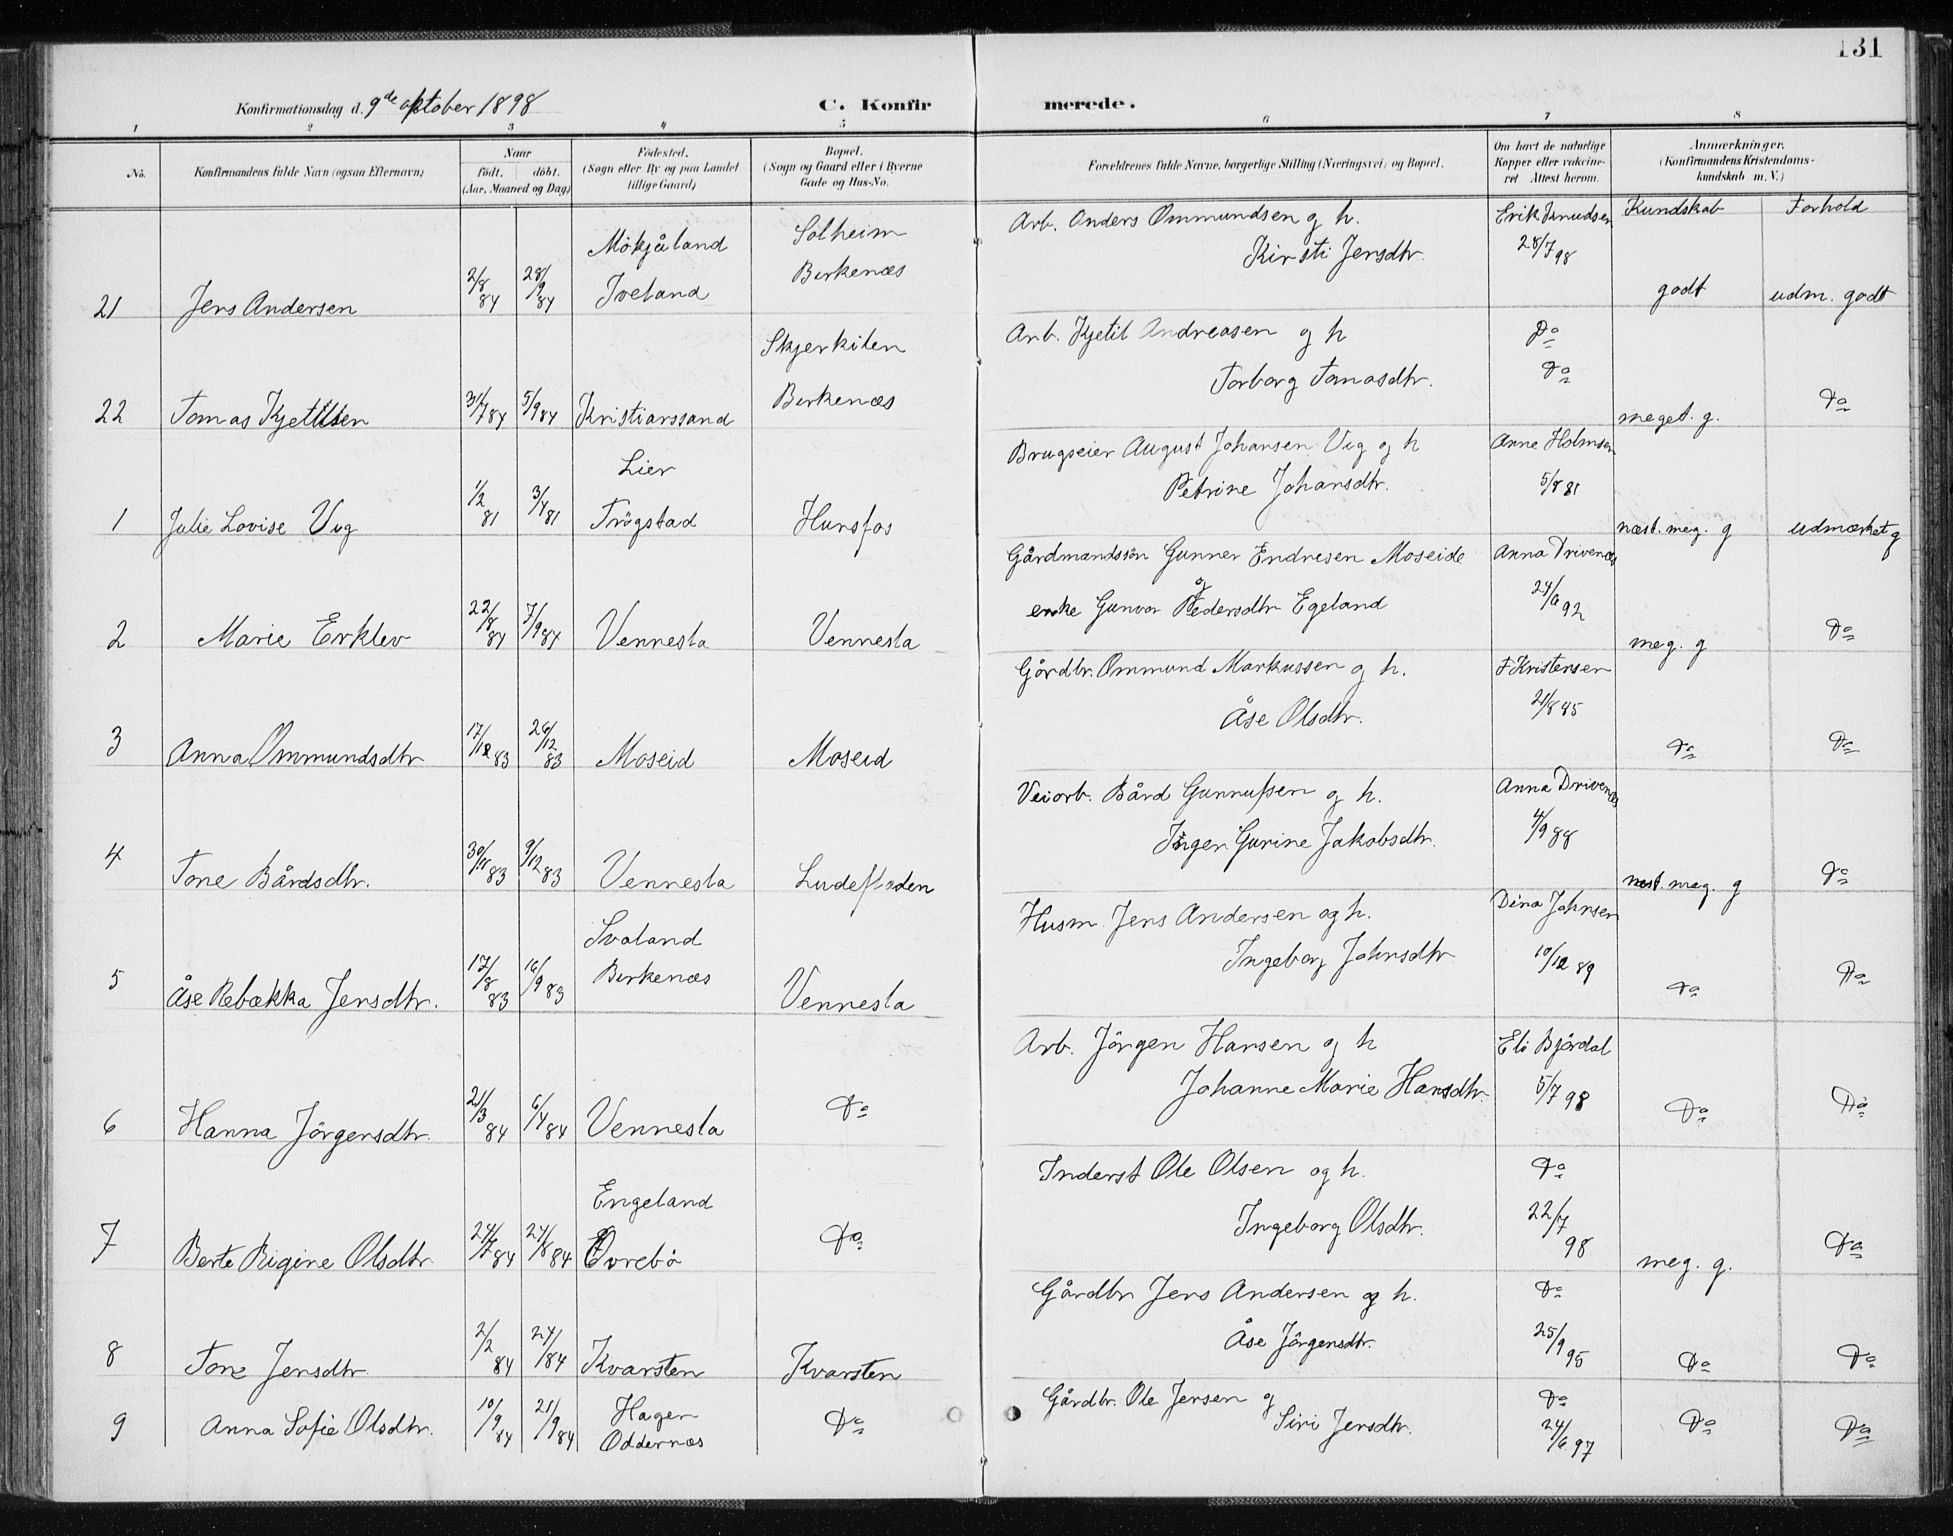 131
Konfirmationsdag d. 9de oktober 1898
C. Konfir merede.
1 2 3 4 5 6 7 8
No. Konfirmandens fulde Navn (ogsaa Efternavn) Naar födt. döbt. (Aar, Maaned og Dag) Födested. (Sogn eller By og paa Landet tillige Gaard) Bopæl. (Sogn og Gaard eller i Byerne Gade og Hus-No. Forældrenes fulde Navne, borgerlige Stilling (Næringsvei) og Bopæl. Om havt de naturlige Kopper eller vakcineret. Attest herom. Anmærkninger. (Konfirmandens Kristendomskundskab m. V.)
Kundskab Forhold
21 Jens Andersen 2/8 84 28/9 84 Mökjåland Iveland Solheim Birkenæs Arb. Anders Ommundsen og h. Kirsti Jensdtr. Erik Knudsen 28/7 98 godt udm. godt
22 Tomas Kjetilsen 31/7 84 5/9 84 Kristianssand Skjerkilen Birkenæs Arb. Kjetil Andreasen og h Torborg Tomasdtr. Do Do meget. g. Do
1 Julie Lovise Vig 1/2 81 3/4 81 Lier Trögstad Hunsfos Brugseier August Johansen Vig og h Petrine Johansdtr. Anne Holmsen 5/8 81 næst. meg. g udmærket g
2 Marie Erklev 22/8 84 7/9 84 Vennesla Vennesla Gårdmandssön Gunner Endresen Moseide og enke Gunvor Pedersdtr Egeland Anna Drivenæs 24/6 92 meg. g Do
3 Anna Ommundsdtr 17/12 83 26/12 83 Moseid Moseid Gårdbr. Ommund Markussen og h. Åse Olsdtr. F Kristensen 21/8 85 Do Do
4 Tone Bårdsdtr. 30/11 83 9/12 83 Vennesla Ludefladen Veiarb. Bård Gunnufsen og h. Inger Gurine Jakobsdtr. Anna Drivenæs 4/9 88 næst. meg. g Do
5 Åse Rebækka Jensdtr. 17/8 83 16/9 83 Svaland Birkenæs Vennesla Husm. Jens Andersen og h. Ingeborg Johnsdtr Dina Johnsen 10/12 89 Do Do
6 Hanna Jörgensdtr. 21/3 84 6/4 84 Vennesla Do Arb. Jörgen Hansen og h Johanne Marie Hansdtr. Eli Bjórdal 5/7 98 Do Do
7 Berte Rigine Olsdtr 24/7 84 24/8 84 Engeland Övrebö Do Inderst Ole Olsen og h. Ingeborg Olsdtr. Do 22/7 98 meg. g. Do
8 Tone Jensdtr 2/2 84 24/ 84 Kvarsten Kvarsten Gårdbr Jens Andersen og h. Åse Jörgensdtr. Do 25/9 95 Do Do
9 Anna Sofie Olsdtr. 10/9 84 21/9 84 Hagen Oddernæs Do Gårdbr. Ole Jensen og Siri Jensdtr. Do 24/6 97 Do Do